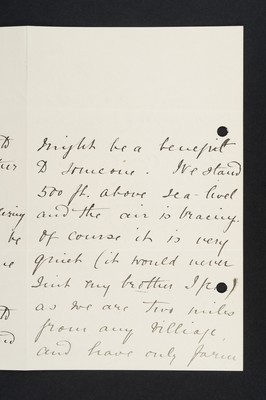 might be a benefit
to someone. We stand
500 ft. above sea-level
and the air is bracing.
Of course it is very
quiet (it would never
suit my brother
as we are two miles
from any village,
and have only farm